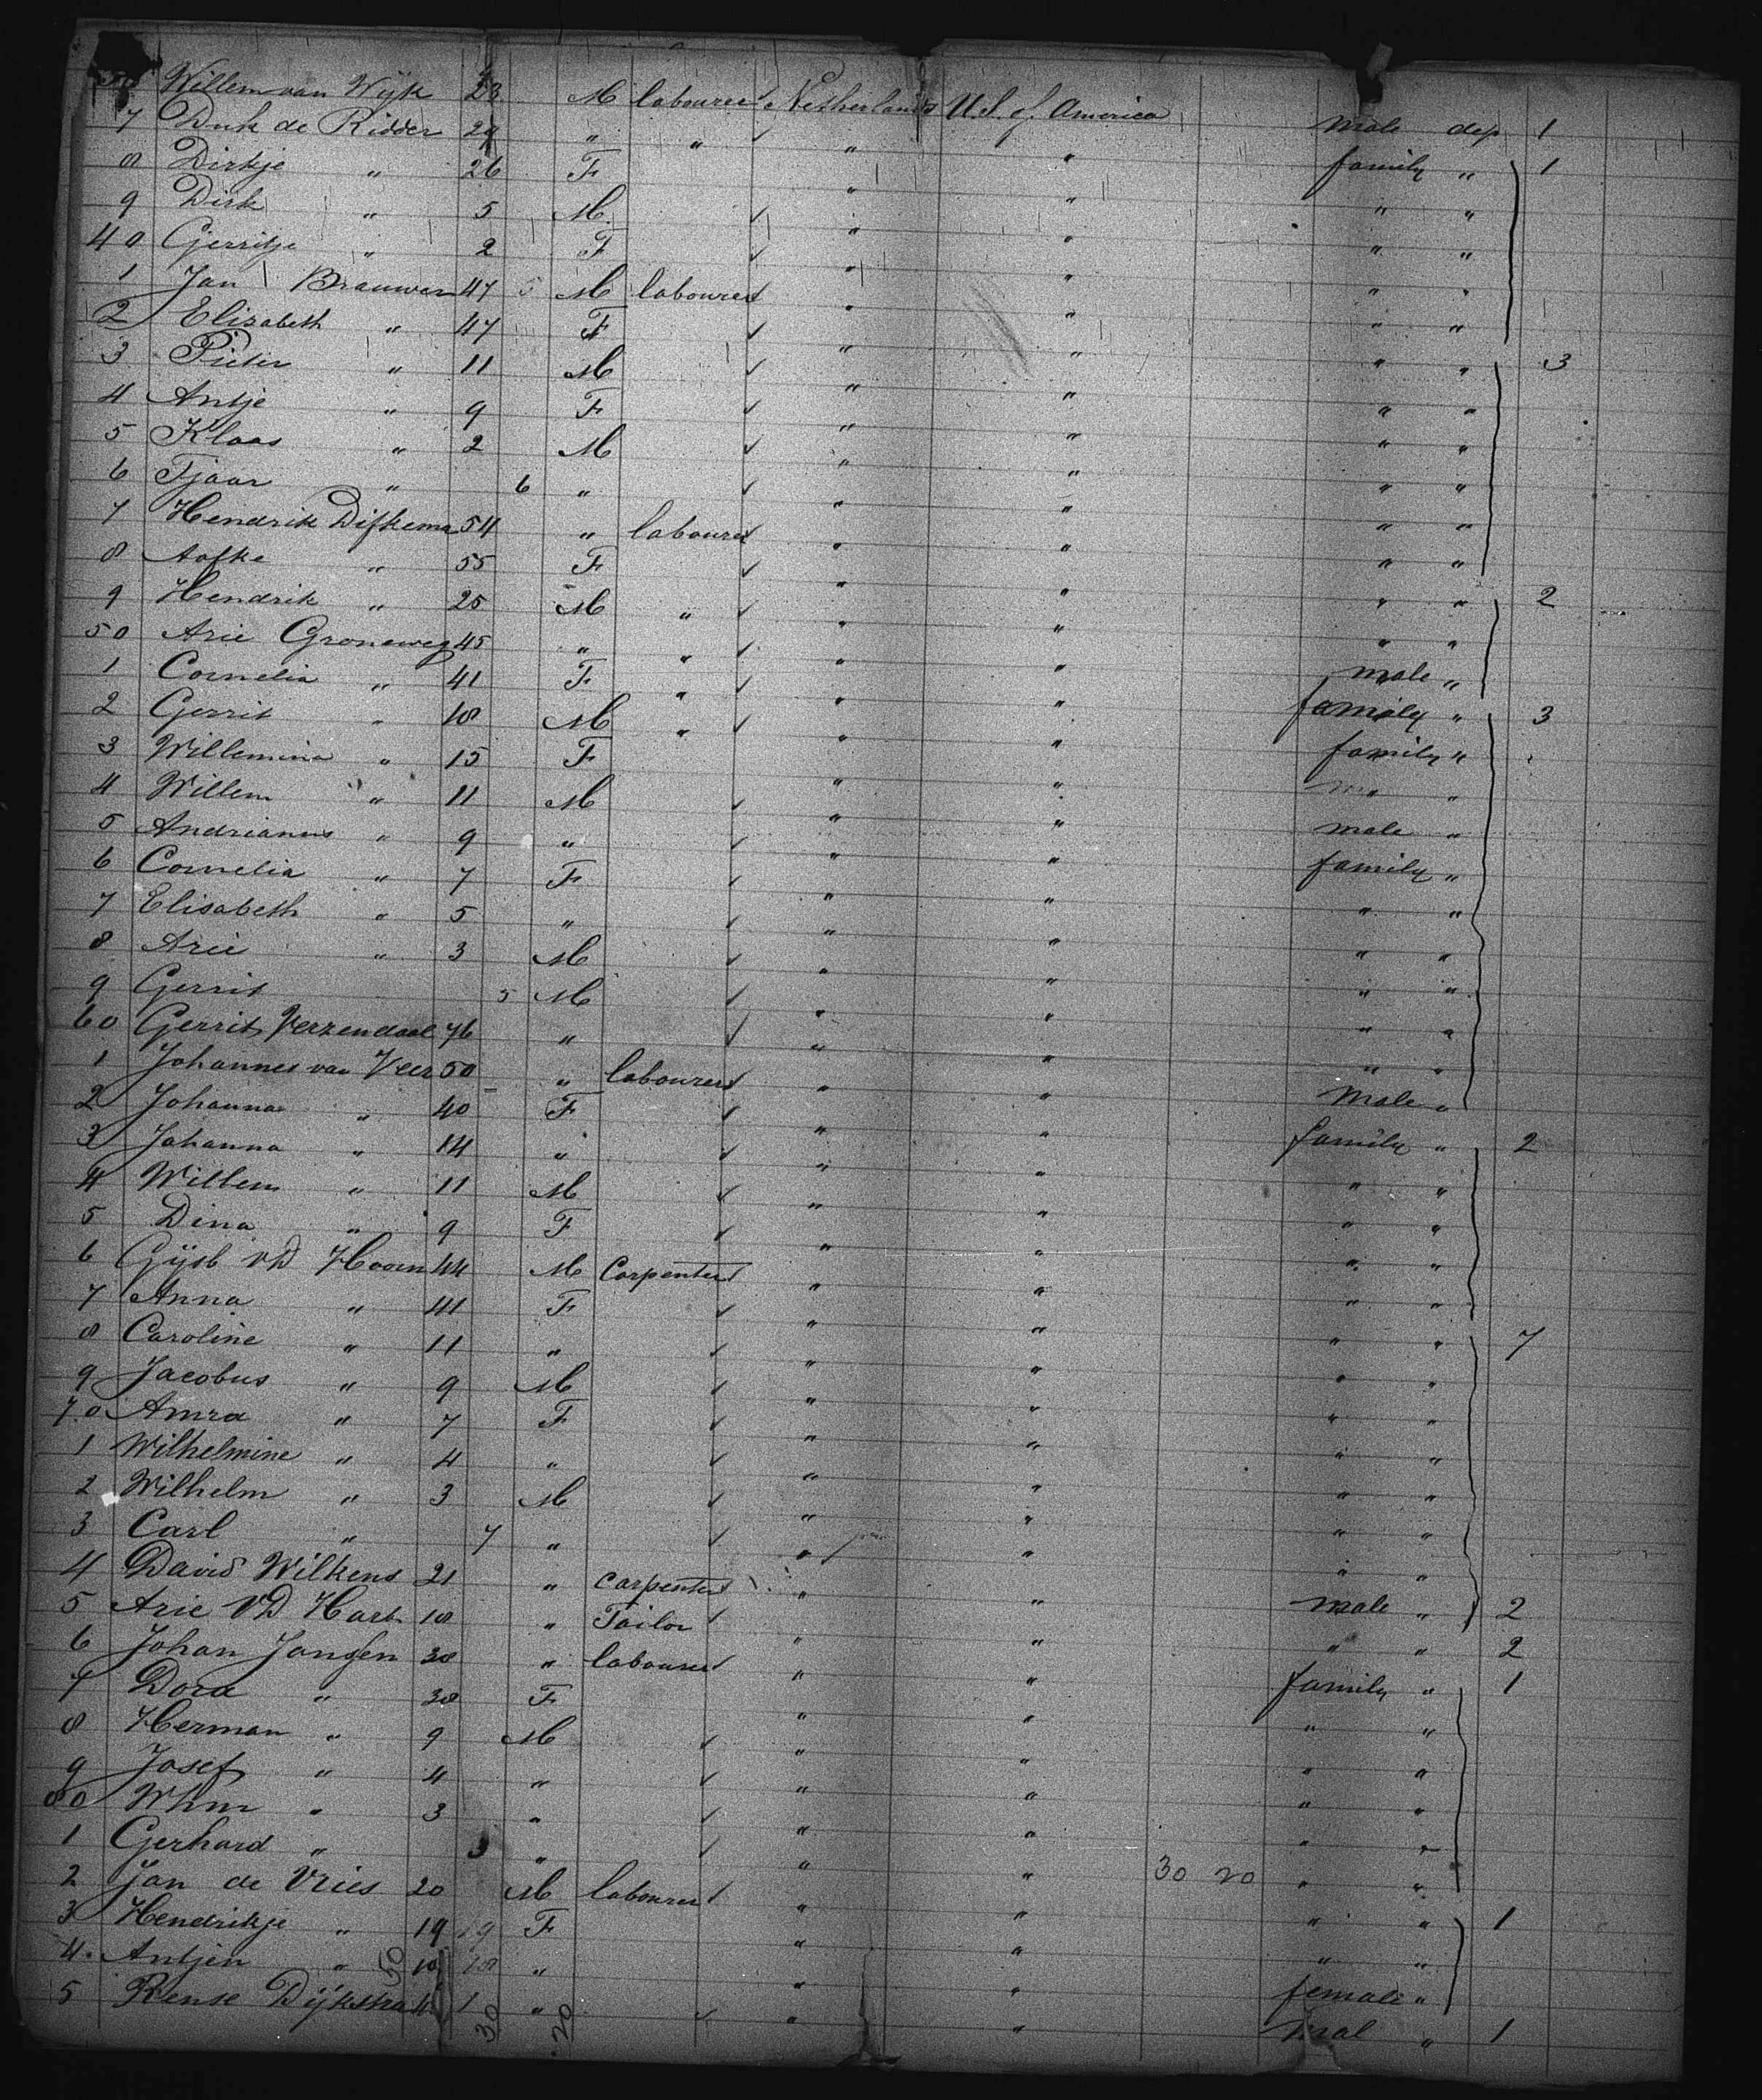 Willem van Wijk 23 M labourer Netherlands U.S. of America male dep 1
7 Dirk de Ridder 29 " " " " family " 1
8 Dirkje " 26 F " " " "
9 Dirk " 5 M " " " "
40 Gerritje " 2 F " " " "
1 Jan Brauwer 47 5 M labourer " " " "
2 Elisabeth " 47 F " " " " 3
3 Pieter " 11 M " " " "
4 Antje " 9 F " " " "
5 Klaas " 2 M " " " "
6 Tjaar " 6 " " " " "
7 Hendrik Difkema 54 " labourer " " " "
8 Aafke " 55 F " " " " 2
9 Hendrik " 25 M " " " " "
50 Arie Groneweg 45 " " " " male "
1 Cornelia " 41 F " " " family " 3
2 Gerrit " 18 M " " " family "
3 Willemina " 15 F " " "
4 Willem " 11 M " " male "
5 Andrianus " 9 " " " family "
6 Cornelia " 7 F " " " "
7 Elisabeth " 5 " " " " "
8 Arie " 3 M " " " "
9 Gerrit 5 M " " " "
60 Gerrit Verzendaal 76 " " " " "
1 Johannes van Veer 50 " labourer " " Male "
2 Johanna " 40 F " " family " 2
3 Johanna " 14 " " " " "
4 Willem " 11 M " " " "
5 Dina " 9 F " " " "
6 Gijsb vD Hoorn 44 M Carpenter " " " "
7 Anna " 41 F " " " " 7
8 Caroline " 11 " " " " "
9 Jacobus " 9 M " " " "
70 Amra " 7 F " " " "
1 Wilhelmine " 4 " " " " "
2 Wilhelm " 3 M " " " "
3 Carl " 7 " " " " "
4 David Wilkens 21 " carpenter " " male " 2
5 Arie VD Hart 18 " Tailor " " " " 2
6 Johan Jansen 38 " labourer " " family " 1
7 Dora " 38 F " " " "
8 Herman " 9 M " " " "
9 Josef " 4 " " " " "
80 Whm " 3 " " " " "
1 Gerhard " 3 " " " 30 20 " "
2 Jan de Vries 20 M labourer " " " " 1
3 Hendrikje " 19 19 F " " " "
4 Antjen " 18 18 " " " female "
5 Rense Dijkstra 1 " " " mal " 1
50 30 20